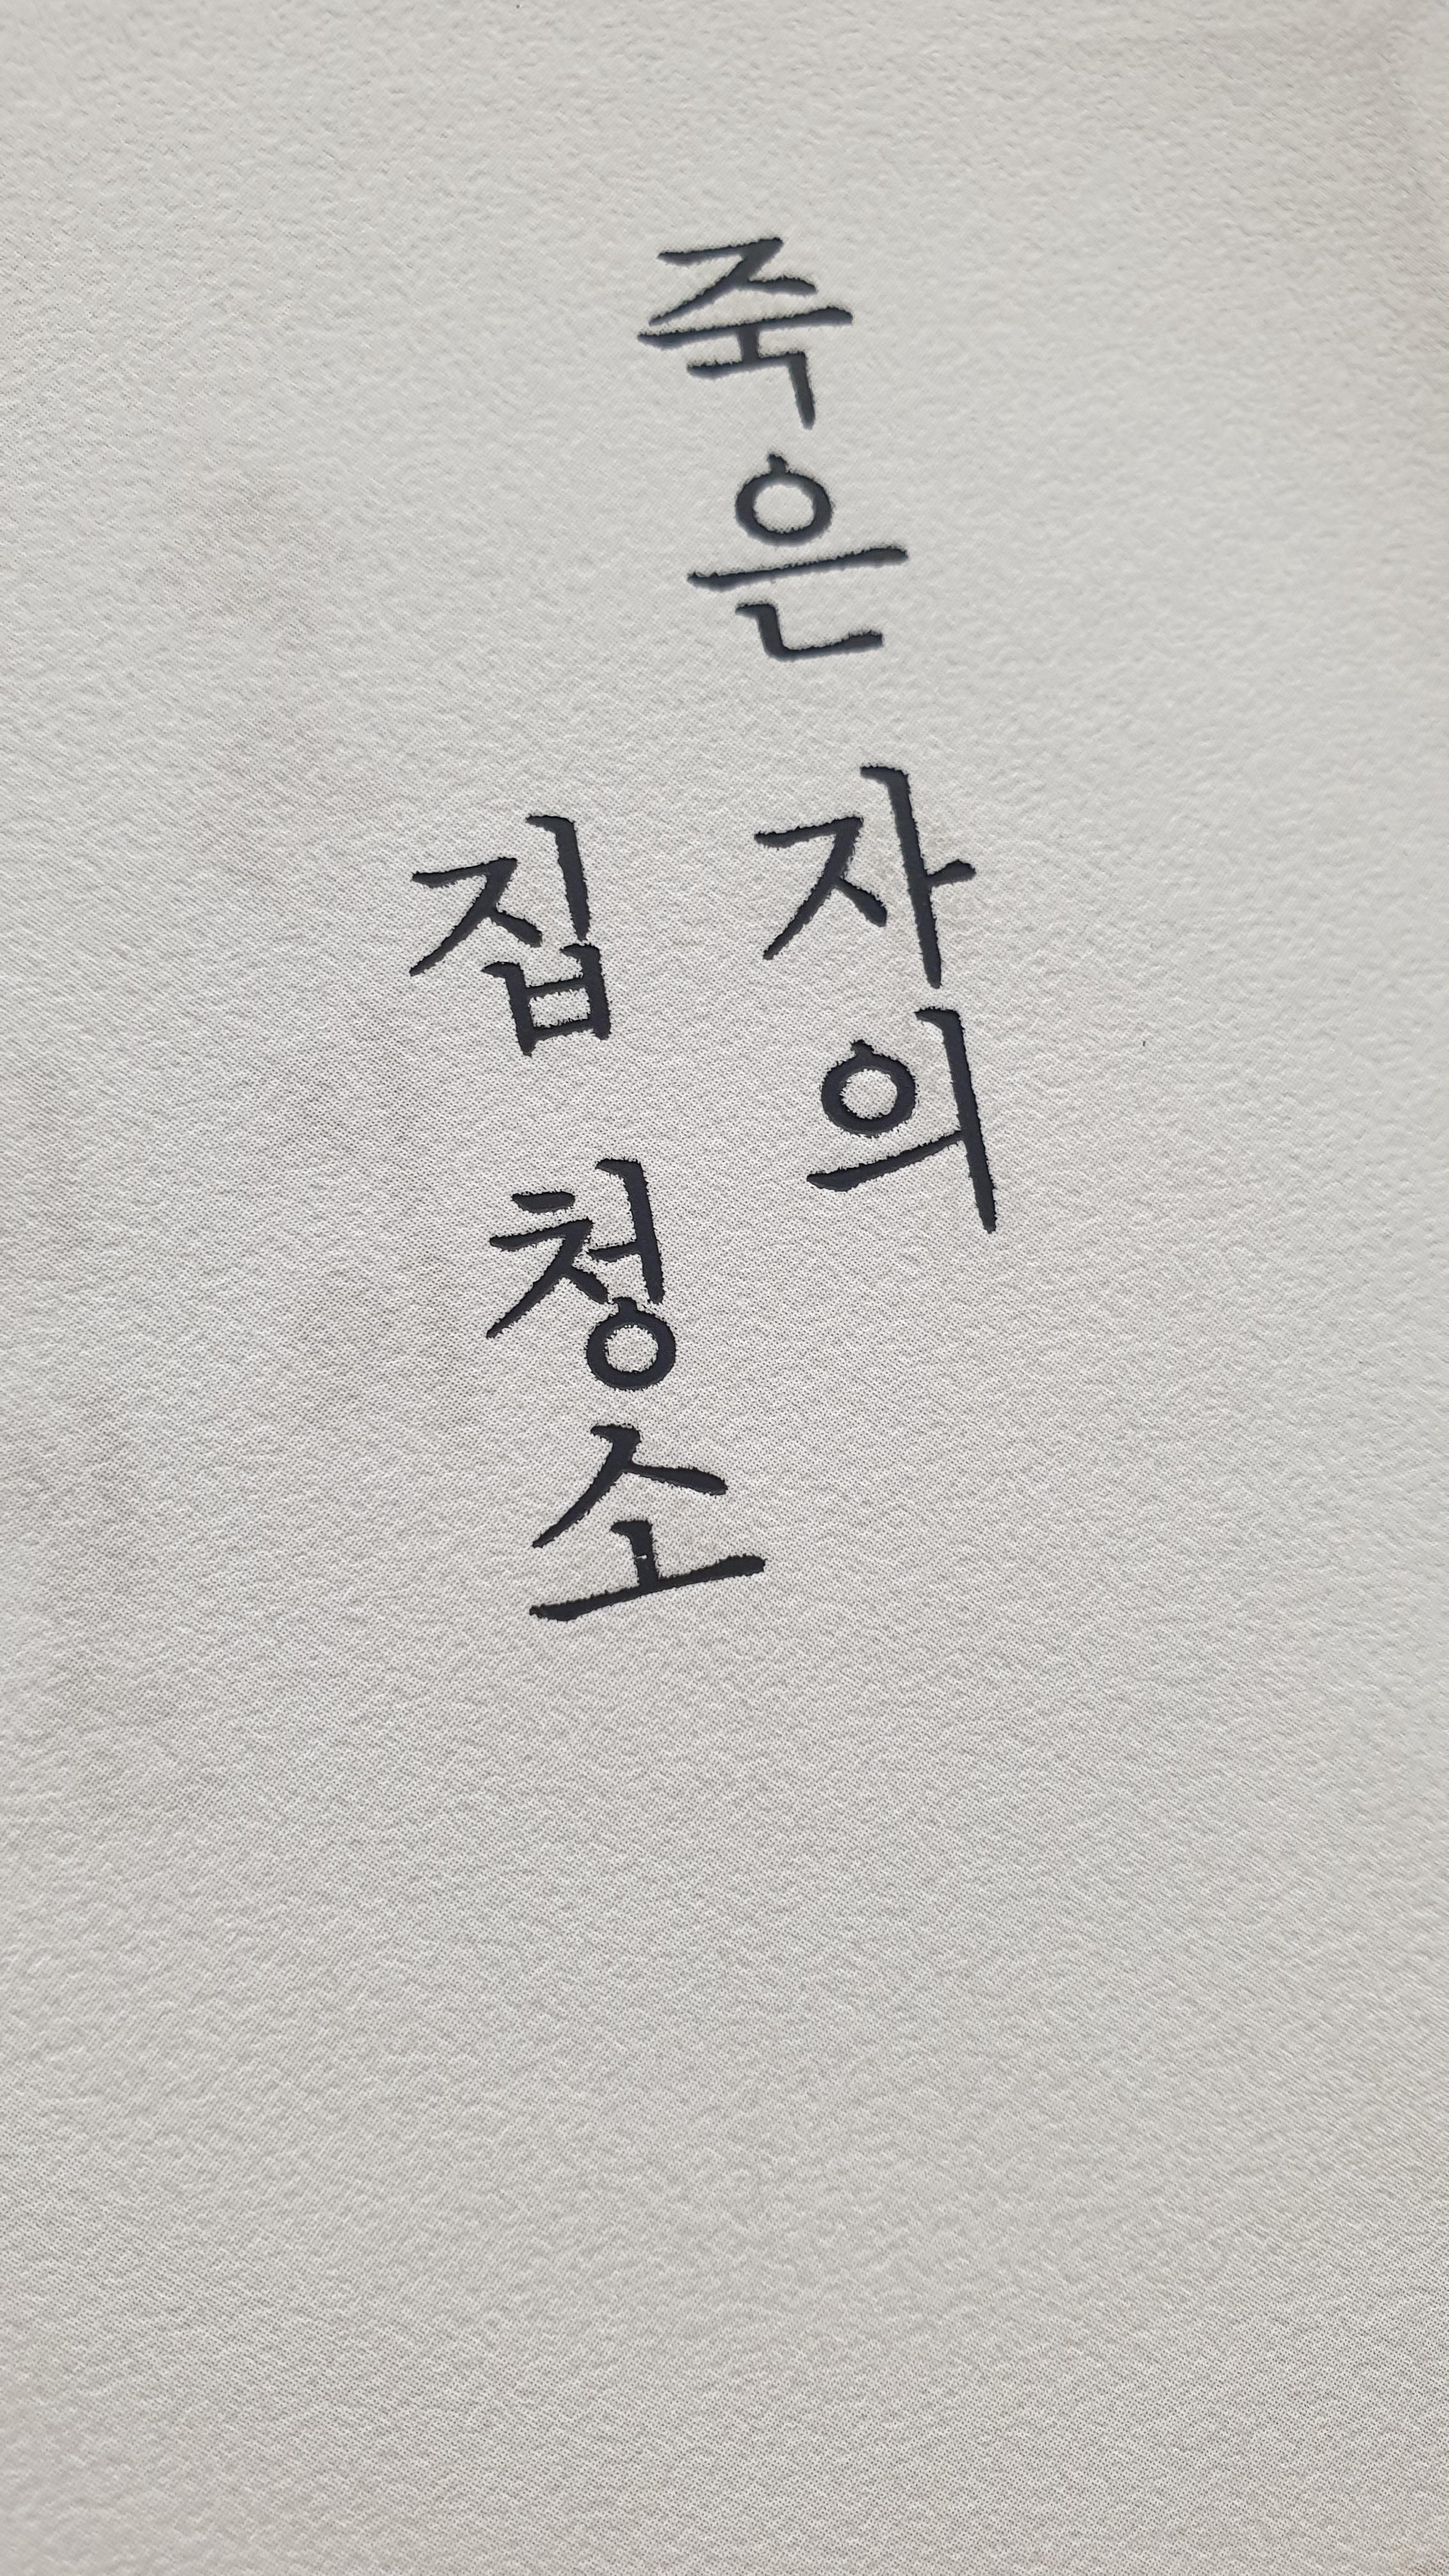 죽은 자의
집 청소